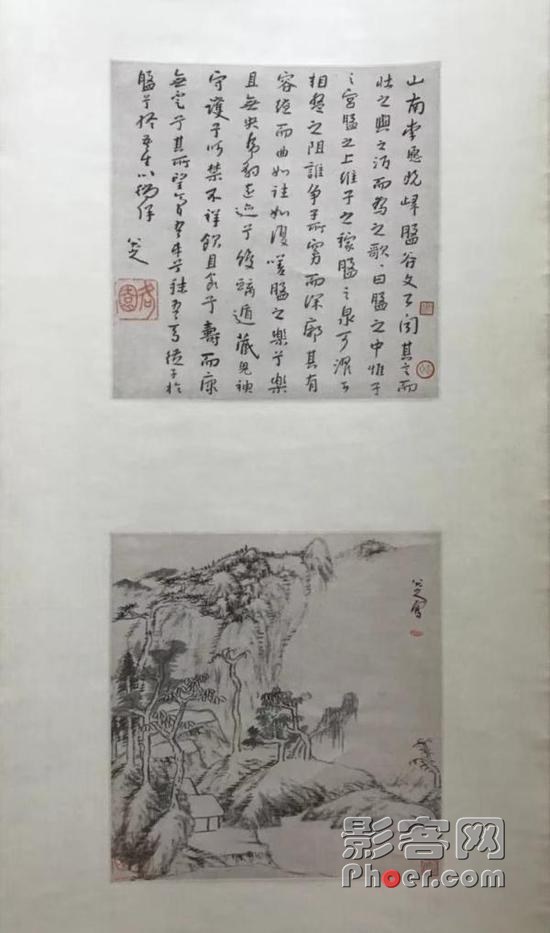 山南李愿歸盤谷文公聞其言而
壯之與之酒而為之歌曰盤之中惟子
之宮盤之上維子之稼盤之泉可濯可
相盤之阻誰爭子所窈而深廓其有
容繚而曲如往如復嗟盤之樂兮樂
且無央虎豹遠迹兮蛟龍遁藏鬼神
守護兮呵禁不祥飲且食兮壽而康
無兮其所望膏吾車兮秣吾馬從子於
盤兮終吾生以徜徉
八大
影客网
Phoer.com